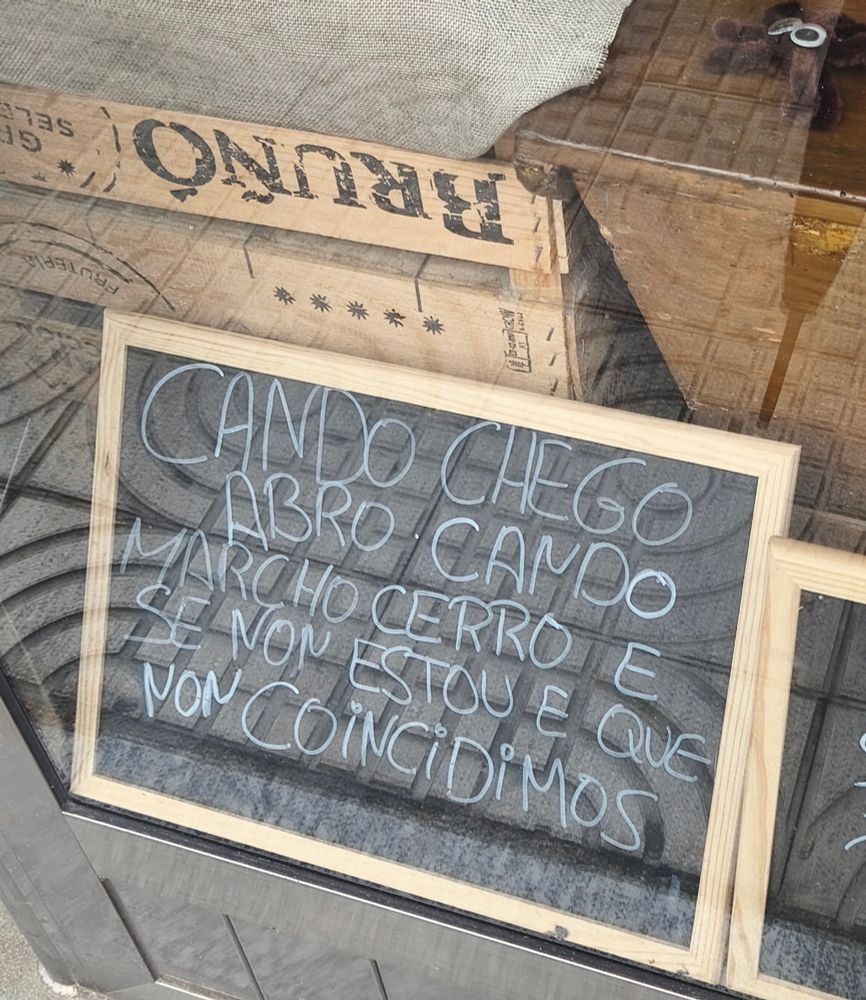 GR
SELE
BRUÑÓ
FRUTERÍA
CANDO CHEGO
ABRO CANDO
MARCHO CERRO E
SE NON ESTOU E QUE
NON COINCIDIMOS